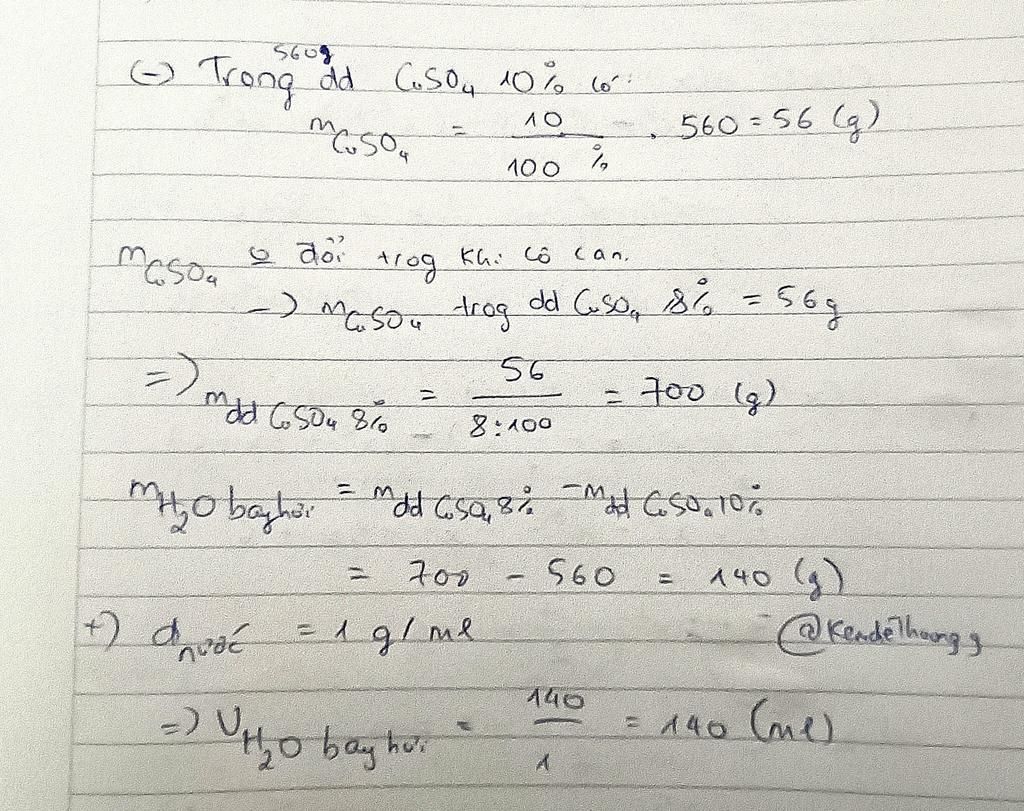 560g
(-) Trong dd CuSO4 10% có:
mCuSO4 = 10/100% . 560 = 56 (g)
mCuSO4 o đổi trog khi cô cạn.
-) mCuSO4 trog dd CuSO4 8% = 56g
=) mdd CuSO4 8% = 56/8:100 = 700 (g)
mH2O bay hơi = mdd CuSO4 8% - mdd CuSO4 10%
= 700 - 560 = 140 (g)
+) dnước = 1 g/ml
@KendeThuongg
=) VH2O bay hơi = 140/1 = 140 (ml)